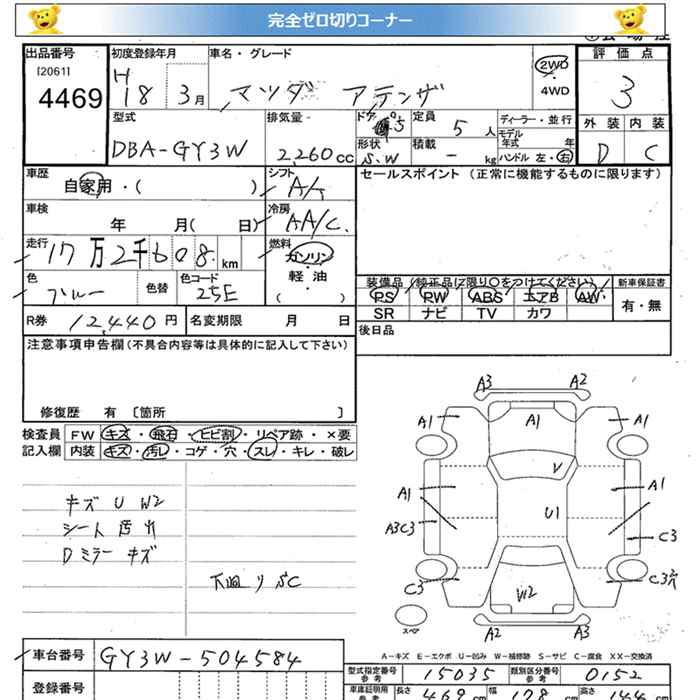 完全ゼロ切りコーナー
出品番号
[2061]
4469
初度登録年月
H18 3月
車名・グレード
マツダ アテンザ
2WD
・
4WD
評価点
3
外装 内装
D C
型式
DBA-GY3W
排気量
2260cc
ドア
5
形状
S.W
定員
5人
積載
- kg
ディーラー・並行
モデル年式 年
ハンドル 左・右
車歴
自家用・( )
シフト
A/T
セールスポイント (正常に機能するものに限ります)
車検
年 月( 日)
冷房
AA/C
走行
17万2千608km
燃料
ガソリン
軽・油
( )
色
ブルー
色替
色コード
25E
装備品 (純正品に限り○をつけてください)
新車保証書
PS PW ABS エアB AW
SR ナビ TV カワ
有・無
R券 12,440円
名変期限 月 日
後日品
注意事項申告欄(不具合内容等は具体的に記入して下さい)
修復歴 有 〔箇所 〕
検査員
記入欄
FW キズ・飛石・ヒビ割・リペア跡・×要
内装 キズ・汚レ・コゲ・穴・スレ・キレ・破レ
キズ U W2
シート 汚れ
Dミラー キズ
下廻り SC
A3 A2
A1 A1 A1
V
A1 U1 A1
A3C3 C3
C3 W2 C3穴
スペア
A2 A3
A-キズ E-エクボ U-凹み W-補修跡 S-サビ C-腐食 XX-交換済
車台番号 GY3W-504584
登録番号
型式指定番号
参考
15035
類別区分番号
参考
0152
車庫証明用
参考
長さ 469cm
幅 178cm
高さ 144cm